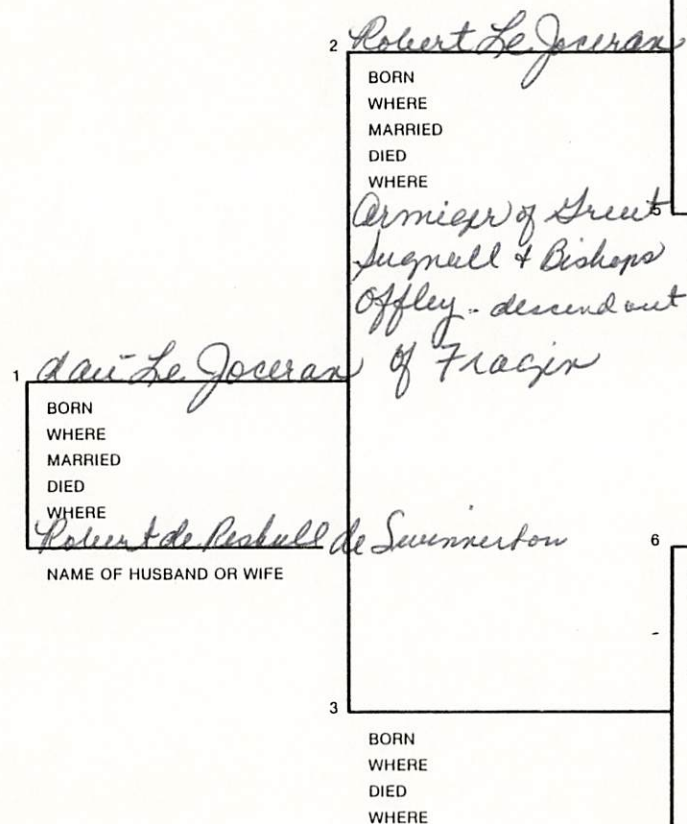 2 Robert Le Joceran
BORN
WHERE
MARRIED
DIED
WHERE
5
Armiger of Great
Sugnall & Bishops
Offley - descendant
of Fragin
1 dau Le Joceran
BORN
WHERE
MARRIED
DIED
WHERE
Robert de Peshall de Swinnerton
NAME OF HUSBAND OR WIFE
6
3
BORN
WHERE
DIED
WHERE